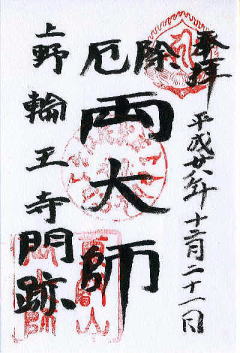 奉拝
平成廿八年十二月二十一日
厄除
両大師
上野輪王寺門跡